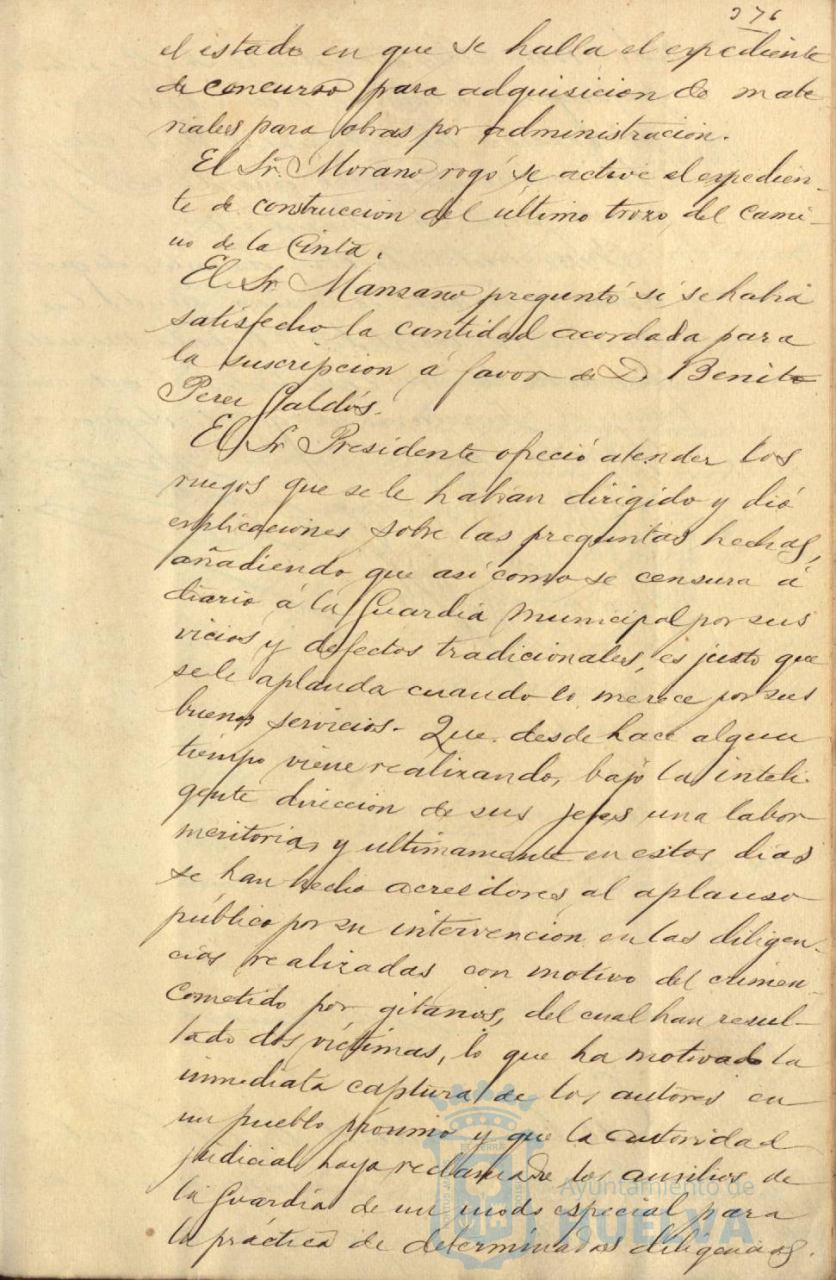 376
el estado en que se halla el expediente
de concurso para adquisicion de mate
riales para obras por administración.
El Sr. Morano rogó se active el expedien-
te de construccion del último trozo del cami-
no de la Cinta.
El Sr Manzano preguntó si se había
satisfecho la cantidad acordada para
la suscripcion á favor de D. Benito
Perez Galdós.
El Sr Presidente ofreció atender los
ruegos que se le habían dirigido y dió
explicaciones sobre las preguntas hechas,
añadiendo que así como se censura á
diario á la Guardia Municipal por sus
vicios y defectos tradicionales, es justo que
se le aplauda cuando lo merece por sus
buenos servicios. Que desde hace algun
tiempo viene realizando, bajo la inteli-
gente direccion de sus jefes una labor
meritoria, y ultimamente en estos dias
se han hecho acreedores al aplauso
público por su intervención en las diligen-
cias realizadas con motivo del crimen
cometido por gitanos, del cual han resul-
tado dos víctimas, lo que ha motivado la
inmediata captura de los autores en
un pueblo próximo y que la autoridad
judicial haya reclamado los auxilios de
la Guardia de un modo especial para
la práctica de determinadas diligencias.
Ayuntamiento de
HUELVA